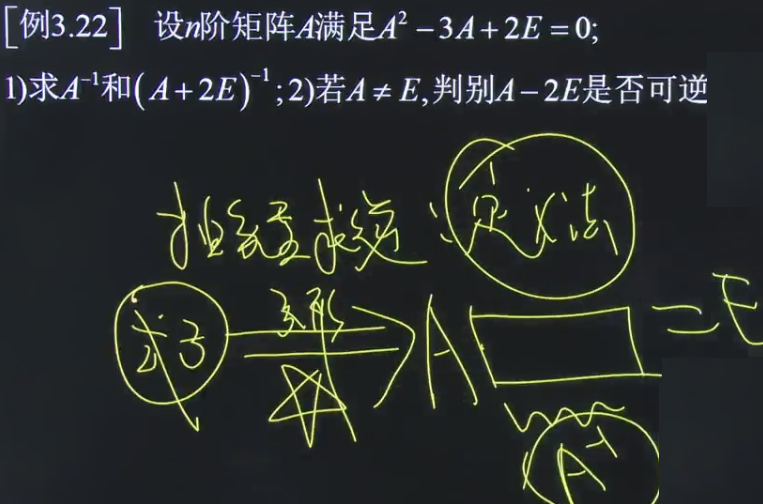 [例3.22] 设n阶矩阵A满足A² − 3A + 2E = 0;
1)求A⁻¹和(A + 2E)⁻¹; 2)若A ≠ E,判别A − 2E是否可逆
抽象型求逆：定义法
式子 变形 A = E
A⁻¹